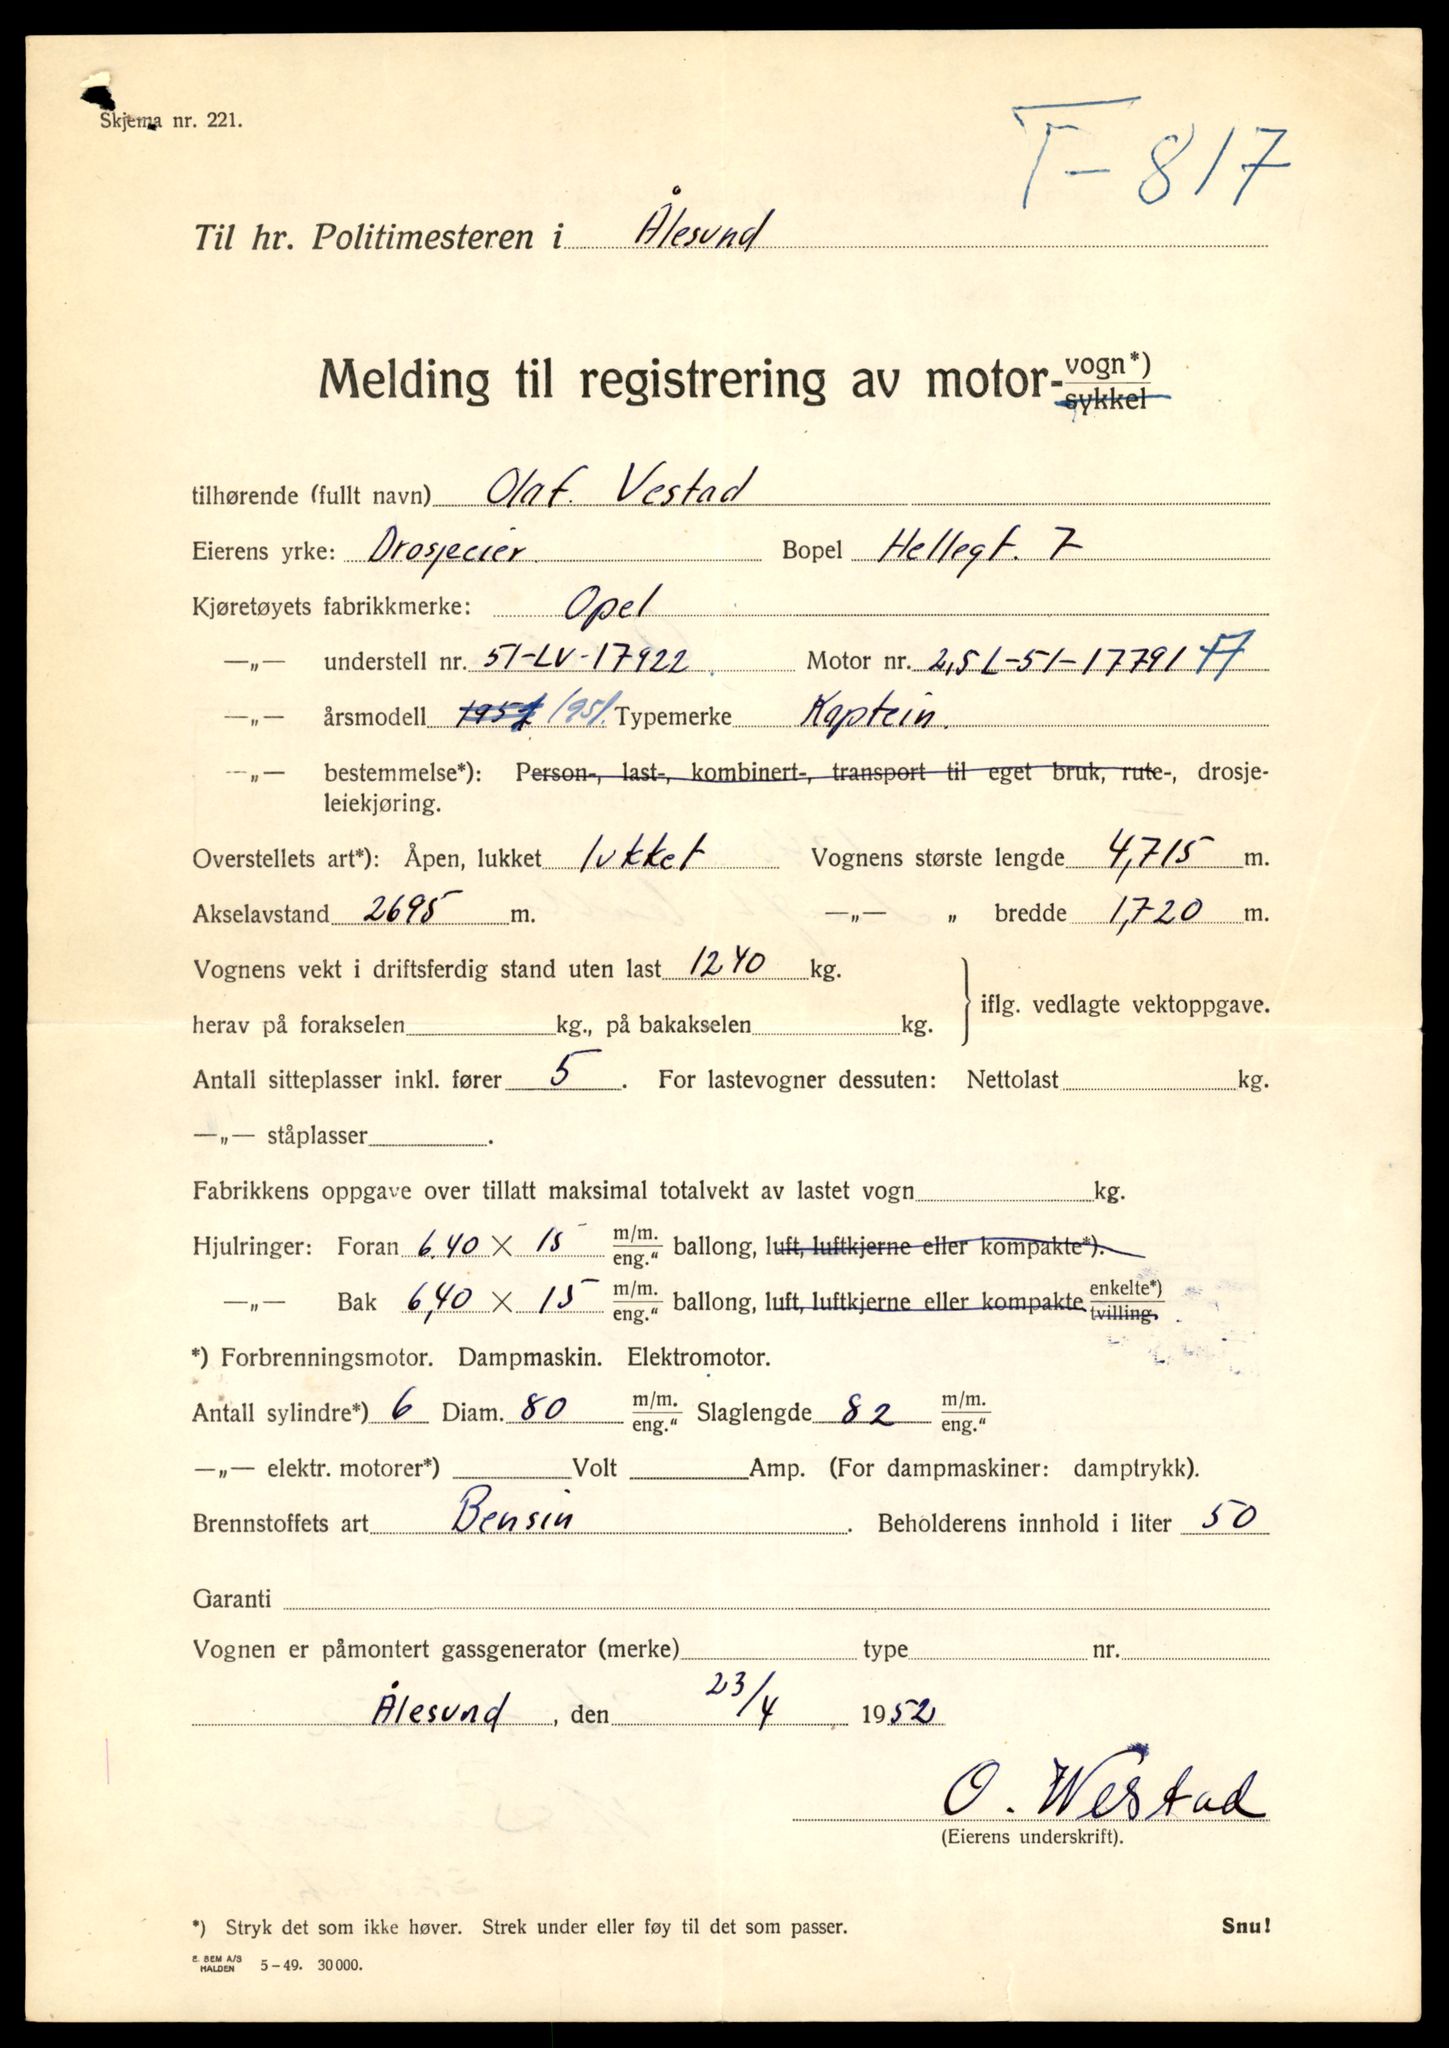 Skjema nr. 221.
T-817
Til hr. Politimesteren i Ålesund
Melding til registrering av motor- vogn*)
sykkel
tilhørende (fullt navn) Olaf. Vestad
Eierens yrke: Drosjeeier. Bopel Hellegt. 7
Kjøretøyets fabrikkmerke: Opel
—„— understell nr. 51-LV-17922 Motor nr. 2,5L-51-17791
—„— årsmodell 1951. Typemerke Kaptein.
—„— bestemmelse*): Person-, last-, kombinert-, transport til eget bruk, rute-, drosje-
leiekjøring.
Overstellets art*): Åpen, lukket lukket Vognens største lengde 4,715 m.
Akselavstand 2695 m. —„— „ bredde 1,720 m.
Vognens vekt i driftsferdig stand uten last 1240 kg.
herav på forakselen kg., på bakakselen kg. } iflg. vedlagte vektoppgave.
Antall sitteplasser inkl. fører 5 . For lastevogner dessuten: Nettolast kg.
—„— ståplasser .
Fabrikkens oppgave over tillatt maksimal totalvekt av lastet vogn kg.
Hjulringer: Foran 6.40 × 15 m/m. eng." ballong, luft, luftkjerne eller kompakte*).
—„— Bak 6,40 × 15 m/m. eng." ballong, luft, luftkjerne eller kompakte enkelte*) tvilling.
*) Forbrenningsmotor. Dampmaskin. Elektromotor.
Antall sylindre*) 6 Diam. 80 m/m. eng." Slaglengde 82 m/m. eng."
—„— elektr. motorer*) Volt Amp. (For dampmaskiner: damptrykk).
Brennstoffets art Bensin . Beholderens innhold i liter 50
Garanti
Vognen er påmontert gassgenerator (merke) type nr.
Ålesund , den 23/4 1952
O. Westad
(Eierens underskrift).
*) Stryk det som ikke høver. Strek under eller føy til det som passer. Snu!
E. SEM A/S
HALDEN 5-49. 30 000.